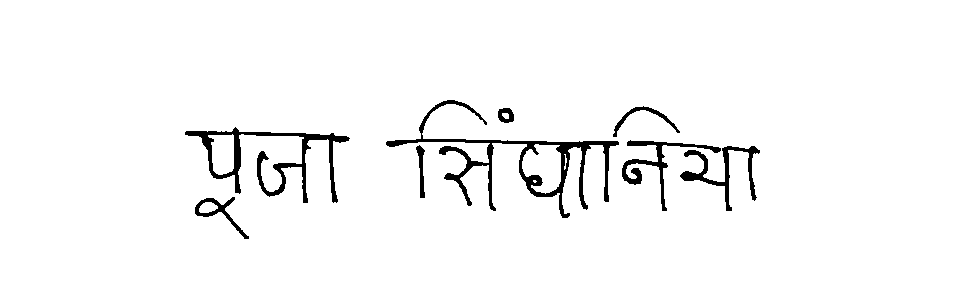 पूजा सिंघानिया